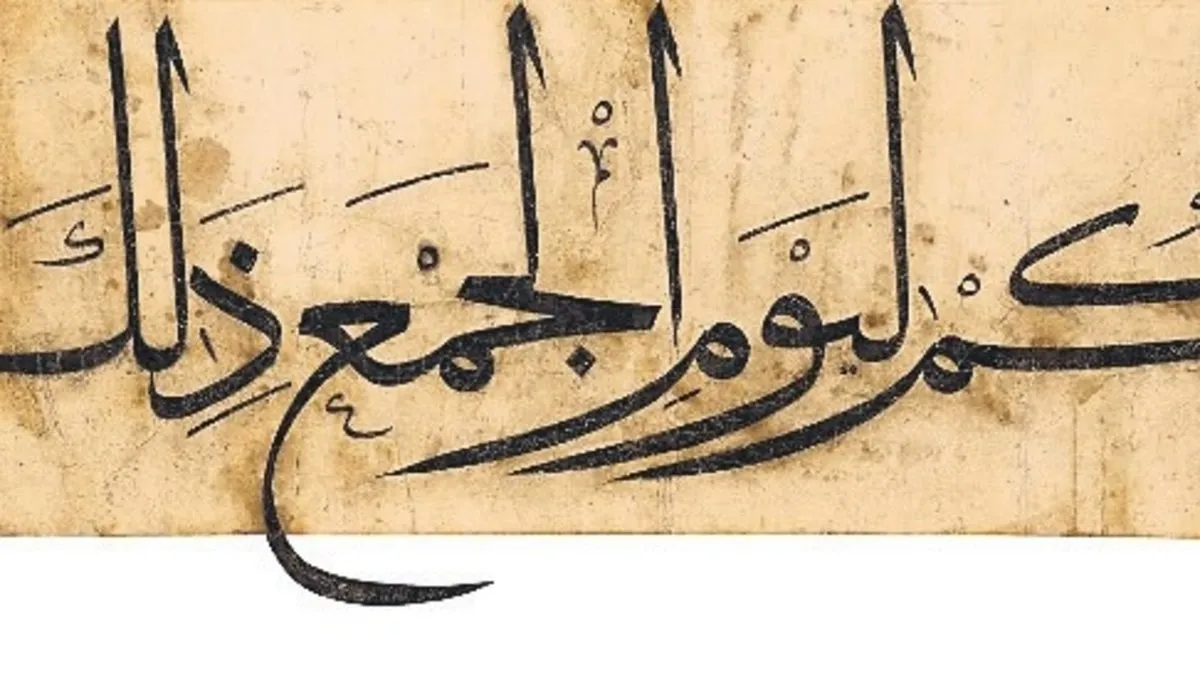 كُمْ لِيَوْمِ الْجَمْعِ ذَلِكَ